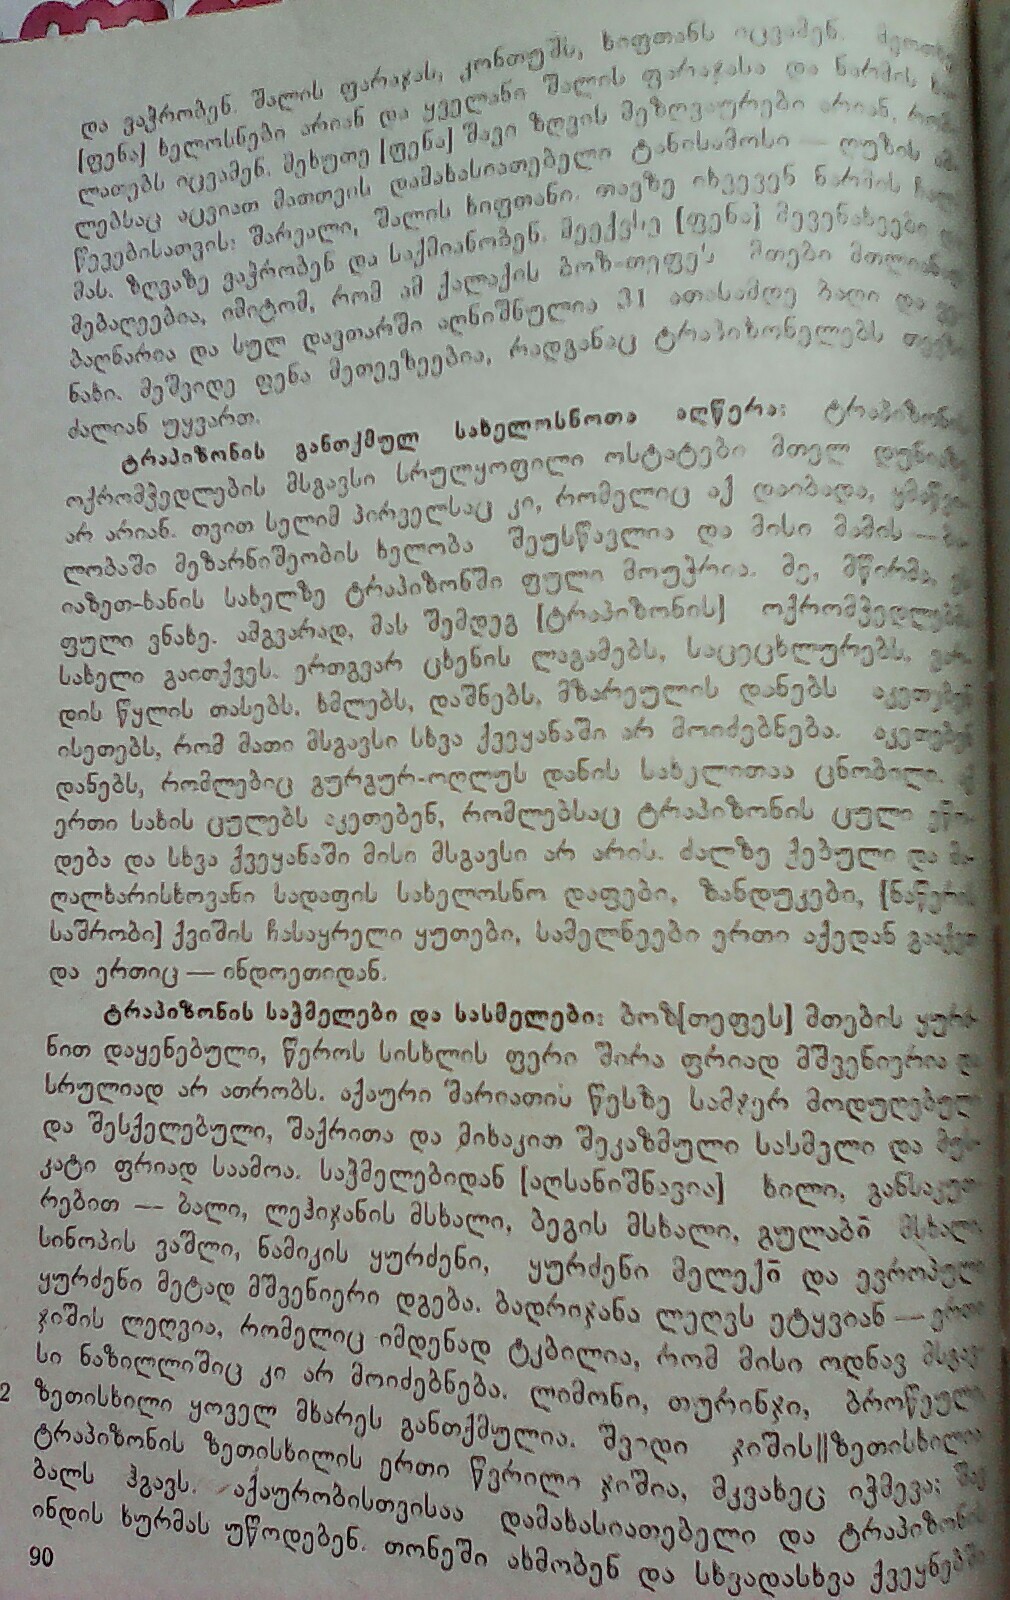 და ვაჭრობენ. შალის ფარაჯას, კონთუშს, ხიფთანს იცვამენ. მეოთხე
[ფენა] ხელოსნები არიან და ყველანი შალის ფარაჯასა და ნარმის
ლათებს იცვამენ. მეხუთე [ფენა] შავი ზღვის მეზღვაურები არიან,
ლებსაც აცვიათ მათთვის დამახასიათებელი ტანისამოსი — ლუზის
წევებისათვის: შარვალი, შალის ხიფთანი. თავზე იხვევენ ნარმის
მას. ზღვაზე ვაჭრობენ და საქმიანობენ. მეექვსე [ფენა] მევენახეები
მებაღეებია, იმიტომ, რომ ამ ქალაქის ბოზ-თეფეს მთები მთლიანად
ბაღნარია და სულ დავთარში აღნიშნულია 31 ათასამდე ბაღი და
ნახი. მეშვიდე ფენა მეთევზეებია, რადგანაც ტრაპიზონელებს თევზი
ძალიან უყვართ.
ტრაპიზონის განთქმულ სახელოსნოთა აღწერა: ტრაპიზონის
ოქრომჭედლების მსგავსი სრულყოფილი ოსტატები მთელ დუნიაზე
არ არიან. თვით სელიმ პირველსაც კი, რომელიც აქ დაიბადა,
ლობაში მეზარნიშეობის ხელობა შეუსწავლია და მისი მამის —
იაზეთ-ხანის სახელზე ტრაპიზონში ფული მოუჭრია. მე, მწირმა,
ფული ვნახე. ამგვარად, მას შემდეგ [ტრაპიზონის] ოქრომჭედლებმა
სახელი გაითქვეს. ერთგვარ ცხენის ლაგამებს, საცეცხლურებს, ვარ-
დის წყლის თასებს, ხმლებს, დაშნებს, მზარეულის დანებს აკეთებენ
ისეთებს, რომ მათი მსგავსი სხვა ქვეყანაში არ მოიძებნება. აკეთებენ
დანებს, რომლებიც გურგურ-ოღლუს დანის სახელითაა ცნობილი.
ერთი სახის ცულებს აკეთებენ, რომლებსაც ტრაპიზონის ცული ეწო-
დება და სხვა ქვეყანაში მისი მსგავსი არ არის. ძალზე ქებული და მა-
ღალხარისხოვანი სადაფის სახელოსნო დაფები, ზანდუკები, [ნაწერის
საშრობი] ქვიშის ჩასაყრელი ყუთები, სამელნეები ერთი აქედან
და ერთიც — ინდოეთიდან.
ტრაპიზონის საჭმელები და სასმელები: ბოზ[თეფეს] მთების ყურძ-
ნით დაყენებული, წეროს სისხლის ფერი შირა ფრიად მშვენიერია და
სრულიად არ ათრობს. აქაური შარიათის წესზე სამჯერ მოდუღებული
და შესქელებული, შაქრითა და მიხაკით შეკაზმული სასმელი და მუს-
კატი ფრიად საამოა. საჭმელებიდან [აღსანიშნავია] ხილი, განსაკუთ-
რებით — ბალი, ლეჰიჯანის მსხალი, ბეგის მსხალი, გულაბი̄ მსხალი,
სინოპის ვაშლი, ნამიკის ყურძენი, ყურძენი მელექი̄ და ევროპული
ყურძენი მეტად მშვენიერი დგება. ბადრიჯანა ლეღვს ეტყვიან — ერთი
ჯიშის ლეღვია, რომელიც იმდენად ტკბილია, რომ მისი ოდნავ მსგავ-
სი ნაზილლიშიც კი არ მოიძებნება. ლიმონი, თურინჯი, ბროწეული
2 ზეთისხილი ყოველ მხარეს განთქმულია. შვიდი ჯიშის||ზეთისხილია
ტრაპიზონის ზეთისხილის ერთი წვრილი ჯიშია, მკვახეც იჭმევა; შავ
ბალს ჰგავს. აქაურობისთვისაა დამახასიათებელი და ტრაპიზონის
ინდის ხურმას უწოდებენ. თონეში ახმობენ და სხვადასხვა ქვეყნებში
90